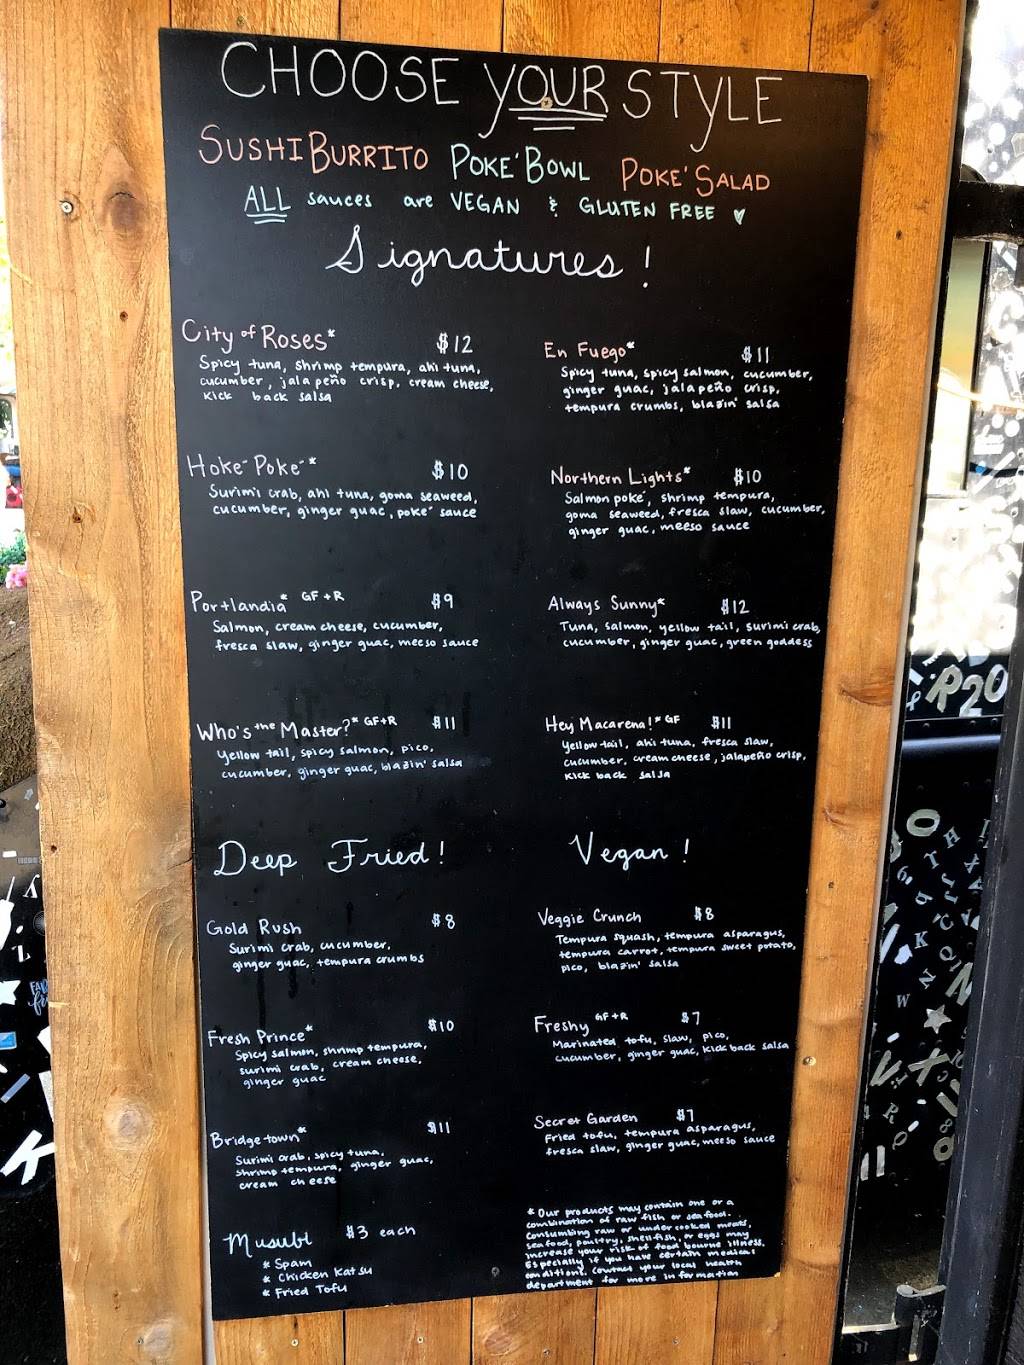 CHOOSE YOUR STYLE
SUSHI BURRITO POKE' BOWL POKE' SALAD
ALL sauces are VEGAN & GLUTEN FREE
Signatures!
City of Roses* $12
Spicy tuna, shrimp tempura, ahi tuna,
cucumber, jalapeño crisp, cream cheese,
Kick back salsa
Hoke Poke * $10
Surimi crab, ahi tuna, goma seaweed,
cucumber, ginger guac, poke sauce
Portlandia* GF+R $9
Salmon, cream cheese, cucumber,
fresca slaw, ginger guac, meeso sauce
Who's the Master?* GF+R $11
Yellow tail, spicy salmon, pico,
cucumber, ginger guac, blazin' salsa
En Fuego* $11
Spicy tuna, spicy salmon, cucumber,
ginger guac, jalapeño crisp,
tempura crumbs, blazin' salsa
Northern Lights* $10
Salmon poke', shrimp tempura,
goma seaweed, fresca slaw, cucumber,
ginger guac, meeso sauce
Always Sunny* $12
Tuna, salmon, yellow tail, surimi crab,
cucumber, ginger guac, green goddess
Hey Macarena!* GF $11
Yellow tail, ahi tuna, fresca slaw,
cucumber, cream cheese, jalapeño crisp,
Kick back salsa
Deep Fried!
Gold Rush $8
Surimi crab, cucumber,
ginger guac, tempura crumbs
Fresh Prince* $10
Spicy salmon, shrimp tempura,
surimi crab, cream cheese,
ginger guac
Bridgetown* $11
Surimi crab, spicy tuna,
shrimp tempura, ginger guac,
cream cheese
Musubi $3 each
* Spam
* Chicken Katsu
* Fried Tofu
Vegan!
Veggie Crunch $8
Tempura squash, tempura asparagus,
tempura carrot, tempura sweet potato,
pico, blazin' salsa
Freshy GF+R $7
Marinated tofu, slaw, pico,
cucumber, ginger guac, kick back salsa
Secret Garden $7
Fried tofu, tempura asparagus,
fresca slaw, ginger guac, meeso sauce
* Our products may contain one or a
combination of raw fish or seafood.
Consuming raw or undercooked meats,
seafood, poultry, shellfish, or eggs may
increase your risk of food bourne illness.
Especially if you have certain medical
conditions. Contact your local health
department for more information
R20